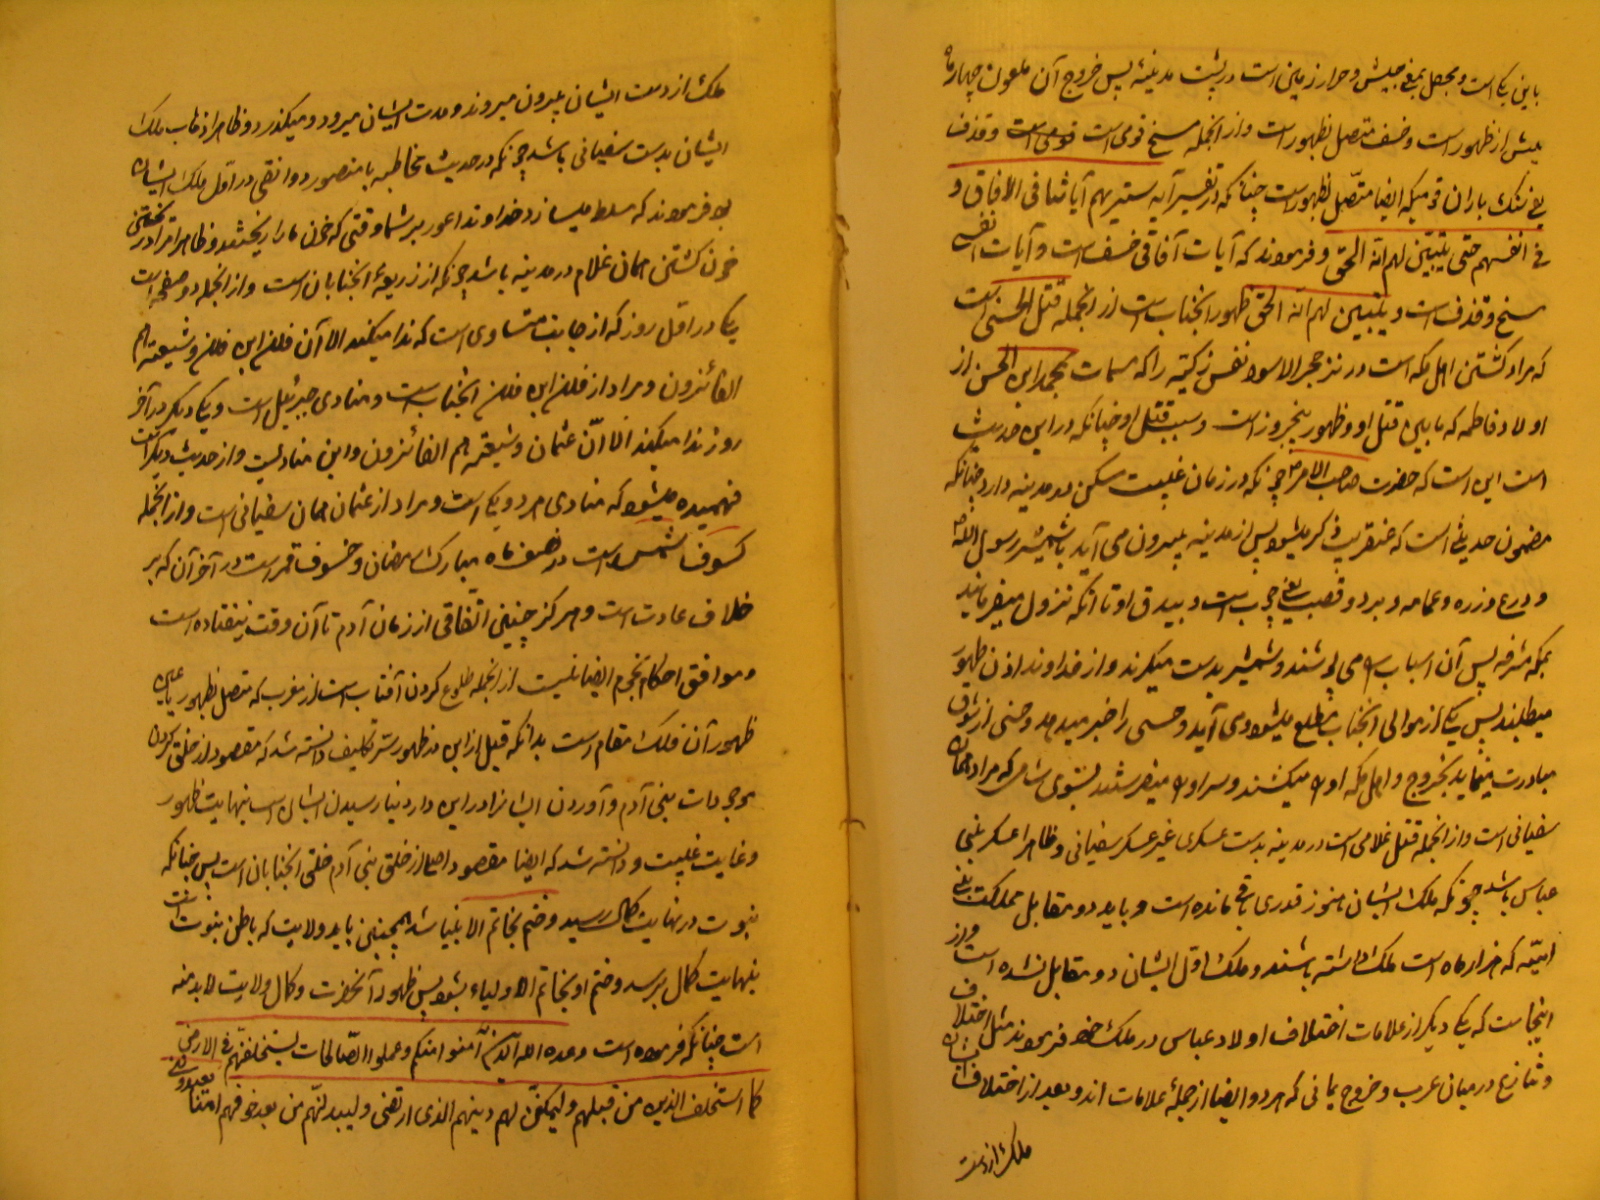 باین یکی است و محصل بمعنی جیش و حرار زمینی است در پشت مدینه پس خروج آن ملعون چهار ماه
پیش از ظهور است و خسف متصل بظهور است و از انجمله مسخ قومی است قومی است و قذف
یعنی سنک باران قومیکه ایضا متصل بظهور است چنانکه در تفسیر آیه سنریهم آیاتنا فی الافاق و
فی انفسهم حتی یتبین لهم انه الحق و فرمودند که آیات آفاقی خسف است و آیات انفسی
مسخ و قذف است و یتبین لهم انه الحق ظهور انجناب است از انجمله قتل الحسنی است
که مراد کشتن اهل مکه است در نزد حجر الاسود نفس زکیه را که مسمات بمحمد ابن الحسن از
اولاد فاطمه که ما بین قتل او و ظهور پنجروز است و سبب قتل او چنانکه در این حدیث
است این است که حضرت صاحب الامر چونکه در زمان غیبت مسکن در مدینه دارد چنانکه
مضمون حدیثی است که عنقریب ذکر میشود پس از مدینه بیرون می آید با شمشیر رسول الله
و درع و زره و عمامه و برد و قصب یعنی چوب است و بیدق او تا آنکه نزول میفرمایند
بمکه مشرفه پس آن اسباب را می پوشند و شمشیر بدست میگیرند و از خداوند اذن ظهور
میطلبند پس یکی از موالی انجناب مطلع میشود و می آید و حسنی را خبر میدهد و حسنی از شوق
مبادرت مینماید بخروج و اهل مکه او را میکشند و سر او را میفرستند بسوی شامی که مراد همان
سفیانی است و از انجمله قتل غلامی است در مدینه بدست عسکری غیر عسکر سفیانی و ظاهرا عسکر بنی
عباس باشد چونکه ملک ایشان هنوز قدری باقی مانده است و باید دو مقابل مملکت بنی
امیه که هزار ماه است ملک داشته باشند و ملک اول ایشان دو مقابل نشده است و از
اینجاست که یکی دیگر از علامات اختلاف اولاد عباس در ملک خود فرمودند مثل اختلاف
و تنازع در میان عرب و خروج یمانی که هر دو ایضا از جمله علامات اند و بعد از اختلاف ایشان
ملک از دست
ملک از دست ایشان بیرون میروند و مدت ایشان میرود و میگذرد و ظاهرا ذهاب ملک
ایشان بدست سفیانی باشد چونکه در حدیث مخاطبه با منصور دوانقی در اول ملک ایشان
بود فرمودند که مسلط میسازد خداوند اعور بر شما وقتی که خون ما را ریختند و ظاهرا مراد ریختن
خون کشتن همان غلام در مدینه باشد چونکه از ذریه انجنابان است و از انجمله دو صیحه است
یکی در اول روز که از جانب سماوی است که ندا میکند الا آن فلان ابن فلان و شیعته هم
الفائزون و مراد از فلان ابن فلان انجناب است و منادی جبرئیل است و یکی دیگر در آخر
روز ندا میکند الا ان عثمان و شیعته هم الفائزون و این منادیست و از حدیث دیگر است
فهمیده میشود که منادی هر دو یکی است و مراد از عثمان همان سفیانی است و از انجمله
کسوف شمس است در نصف ماه مبارک رمضان و خسوف قمر است در آخر آن که بر
خلاف عادت است و هرگز چنین اتفاقی از زمان آدم تا آن وقت نیفتاده است
و موافق احکام نجوم ایضا نیست از انجمله طلوع کردن آفتاب است از مغرب که متصل بظهور یا عین
ظهور آن فلک مقام است بدانکه قبل از این در ظهور ستر تکلیف دانسته شد که مقصود از خلق کردن
موجودات بنی آدم و آوردن ایشانرا در این دار دنیا رسیدن ایشان است بنهایت ظهور
و غایت غیبت و دانسته شد که ایضا مقصود اصلی از خلق بنی آدم خلق انجنابان است پس چنانکه
نبوت در نهایت کمال رسید و ختم بخاتم الانبیا شد همچنین باید ولایت که باطن نبوت است
بنهایت کمال برسد و ختم او بخاتم الاولیاء بشود پس ظهور آنحضرت و کمال ولایت لابد منه
است چنانکه فرموده است وعده الله الذین آمنوا منکم و عملوا الصالحات لیستخلفنهم فی الارض
کما استخلف الذین من قبلهم و لیمکنن لهم دینهم الذی ارتضی و لیبدلنهم من بعد خوفهم امنا یعبدوننی